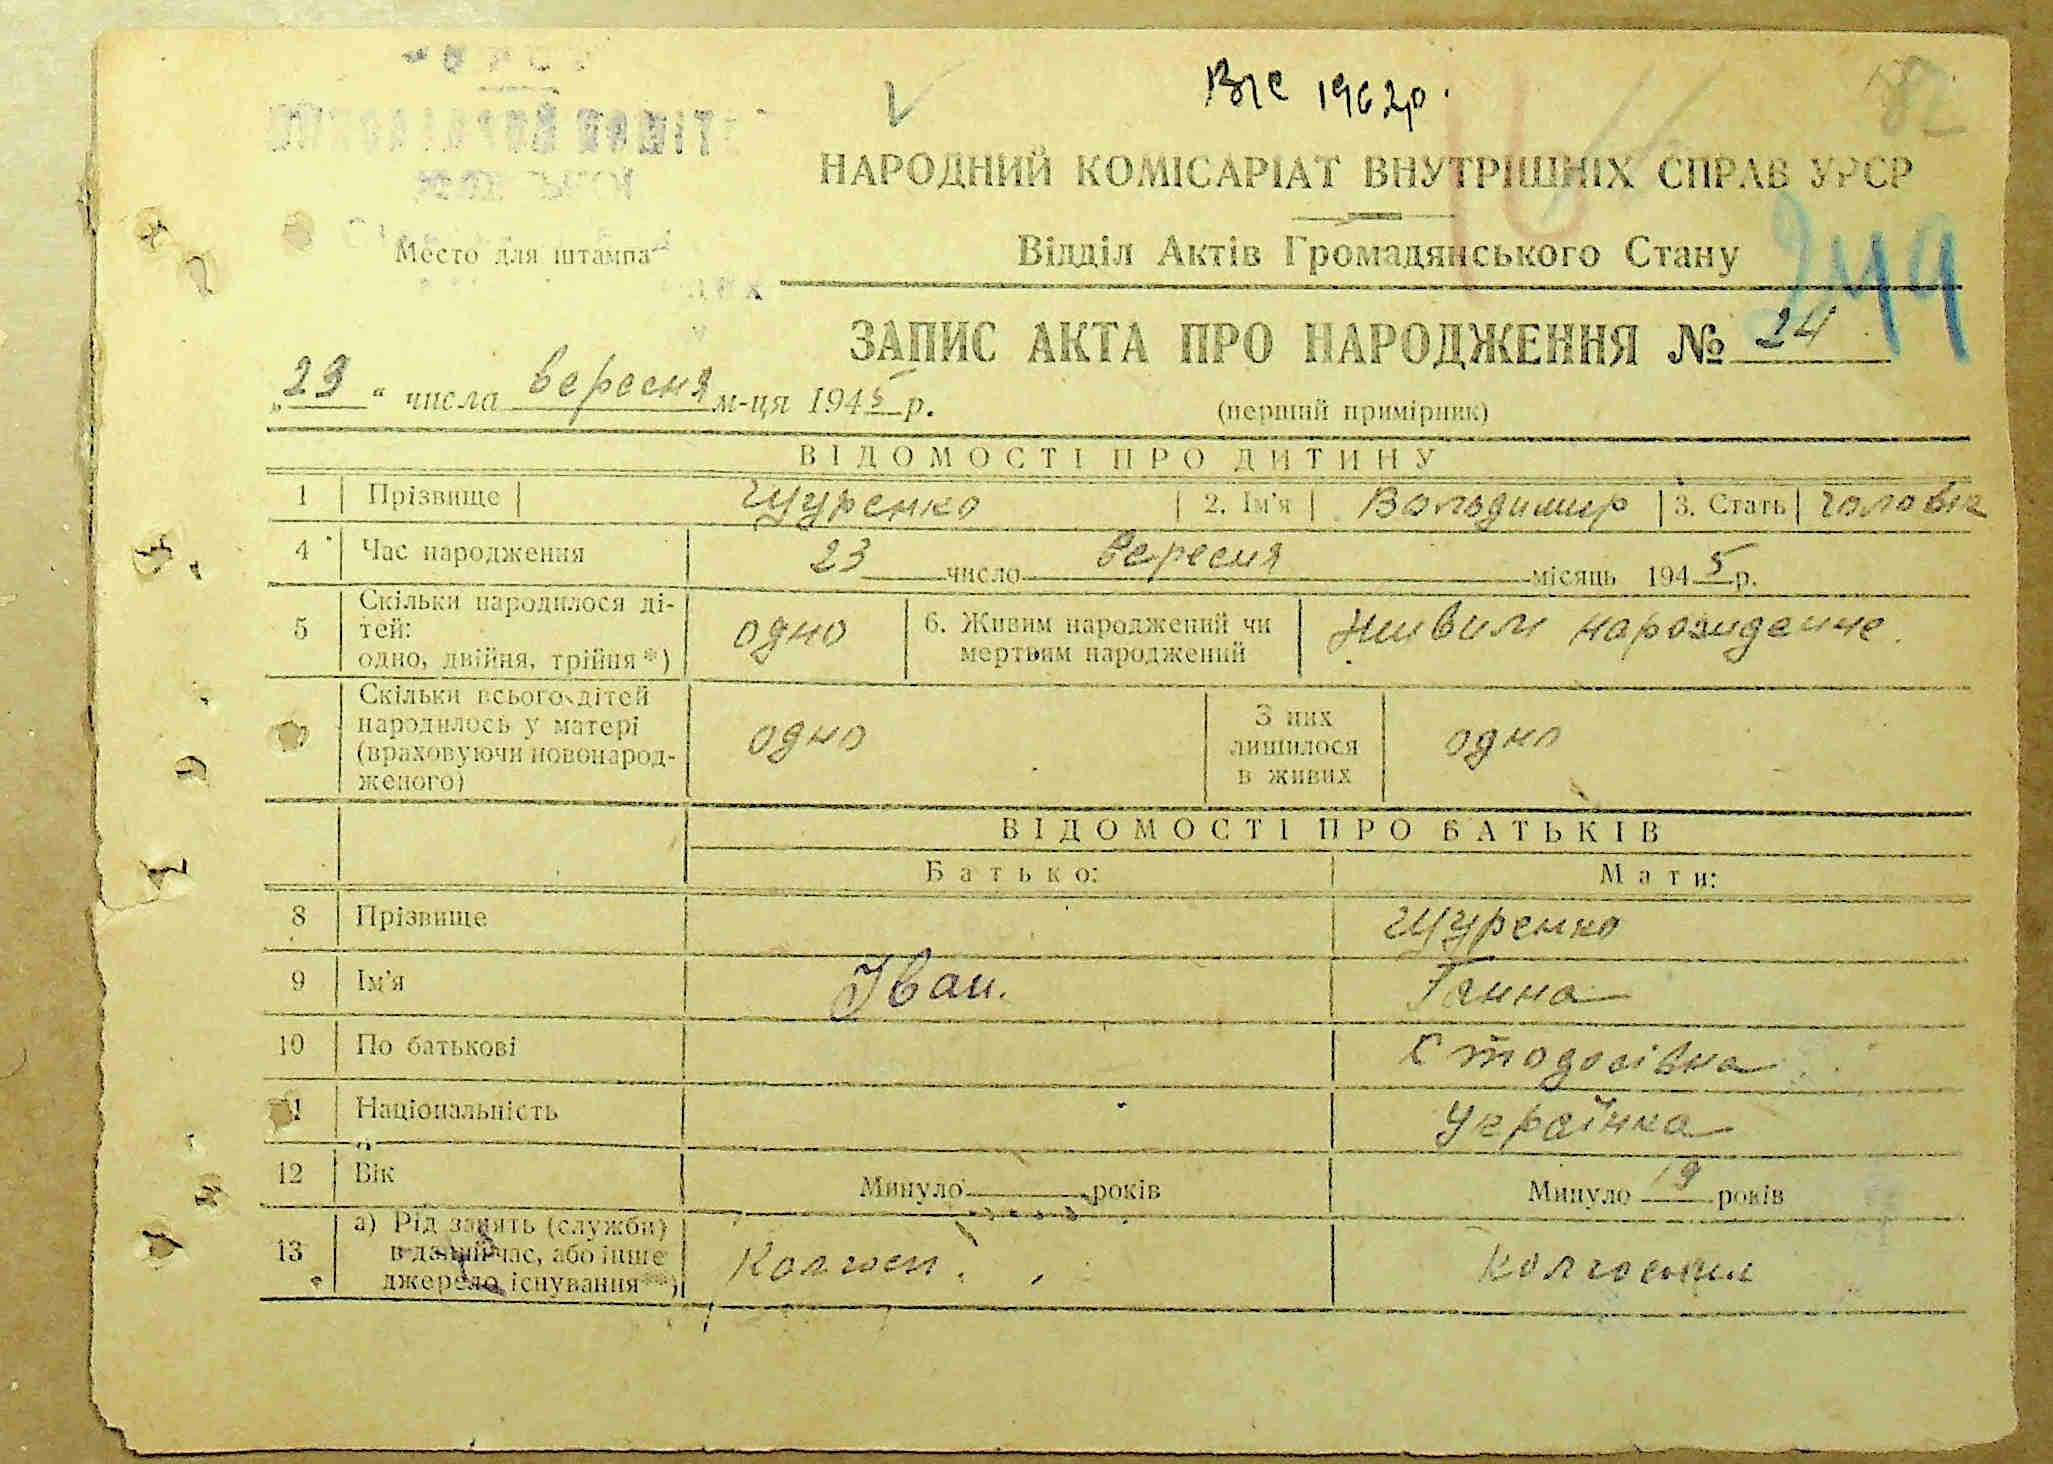 В/с 1962р.
82
НАРОДНИЙ КОМІСАРІАТ ВНУТРІШНІХ СПРАВ УРСР
Место для штампа
Відділ Актів Громадянського Стану
249
ЗАПИС АКТА ПРО НАРОДЖЕННЯ № 24
„29“ числа вересня м-ця 1945 р.
(перший примірник)
ВІДОМОСТІ ПРО ДИТИНУ
1 Прізвище Щуренко 2. Ім'я Володимир 3. Стать чоловік
4 Час народження 23 число вересня місяць 1945 р.
5 Скільки народилося ді-
тей:
одно, двійня, трійня*) одно 6. Живим народжений чи
мертвим народжений живим народжене
Скільки всього дітей
народилось у матері
(враховуючи новонарод-
женого) одно З них
лишилося
в живих одно
ВІДОМОСТІ ПРО БАТЬКІВ
Батько: Мати:
8 Прізвище Щуренко
9 Ім'я Іван. Ганна
10 По батькові Стодосівна
11 Національність Українка
12 Вік Минуло років Минуло 19 років
13 а) Рід занять (служби)
в даний час, або інше
джерело існування**) Колгосп.